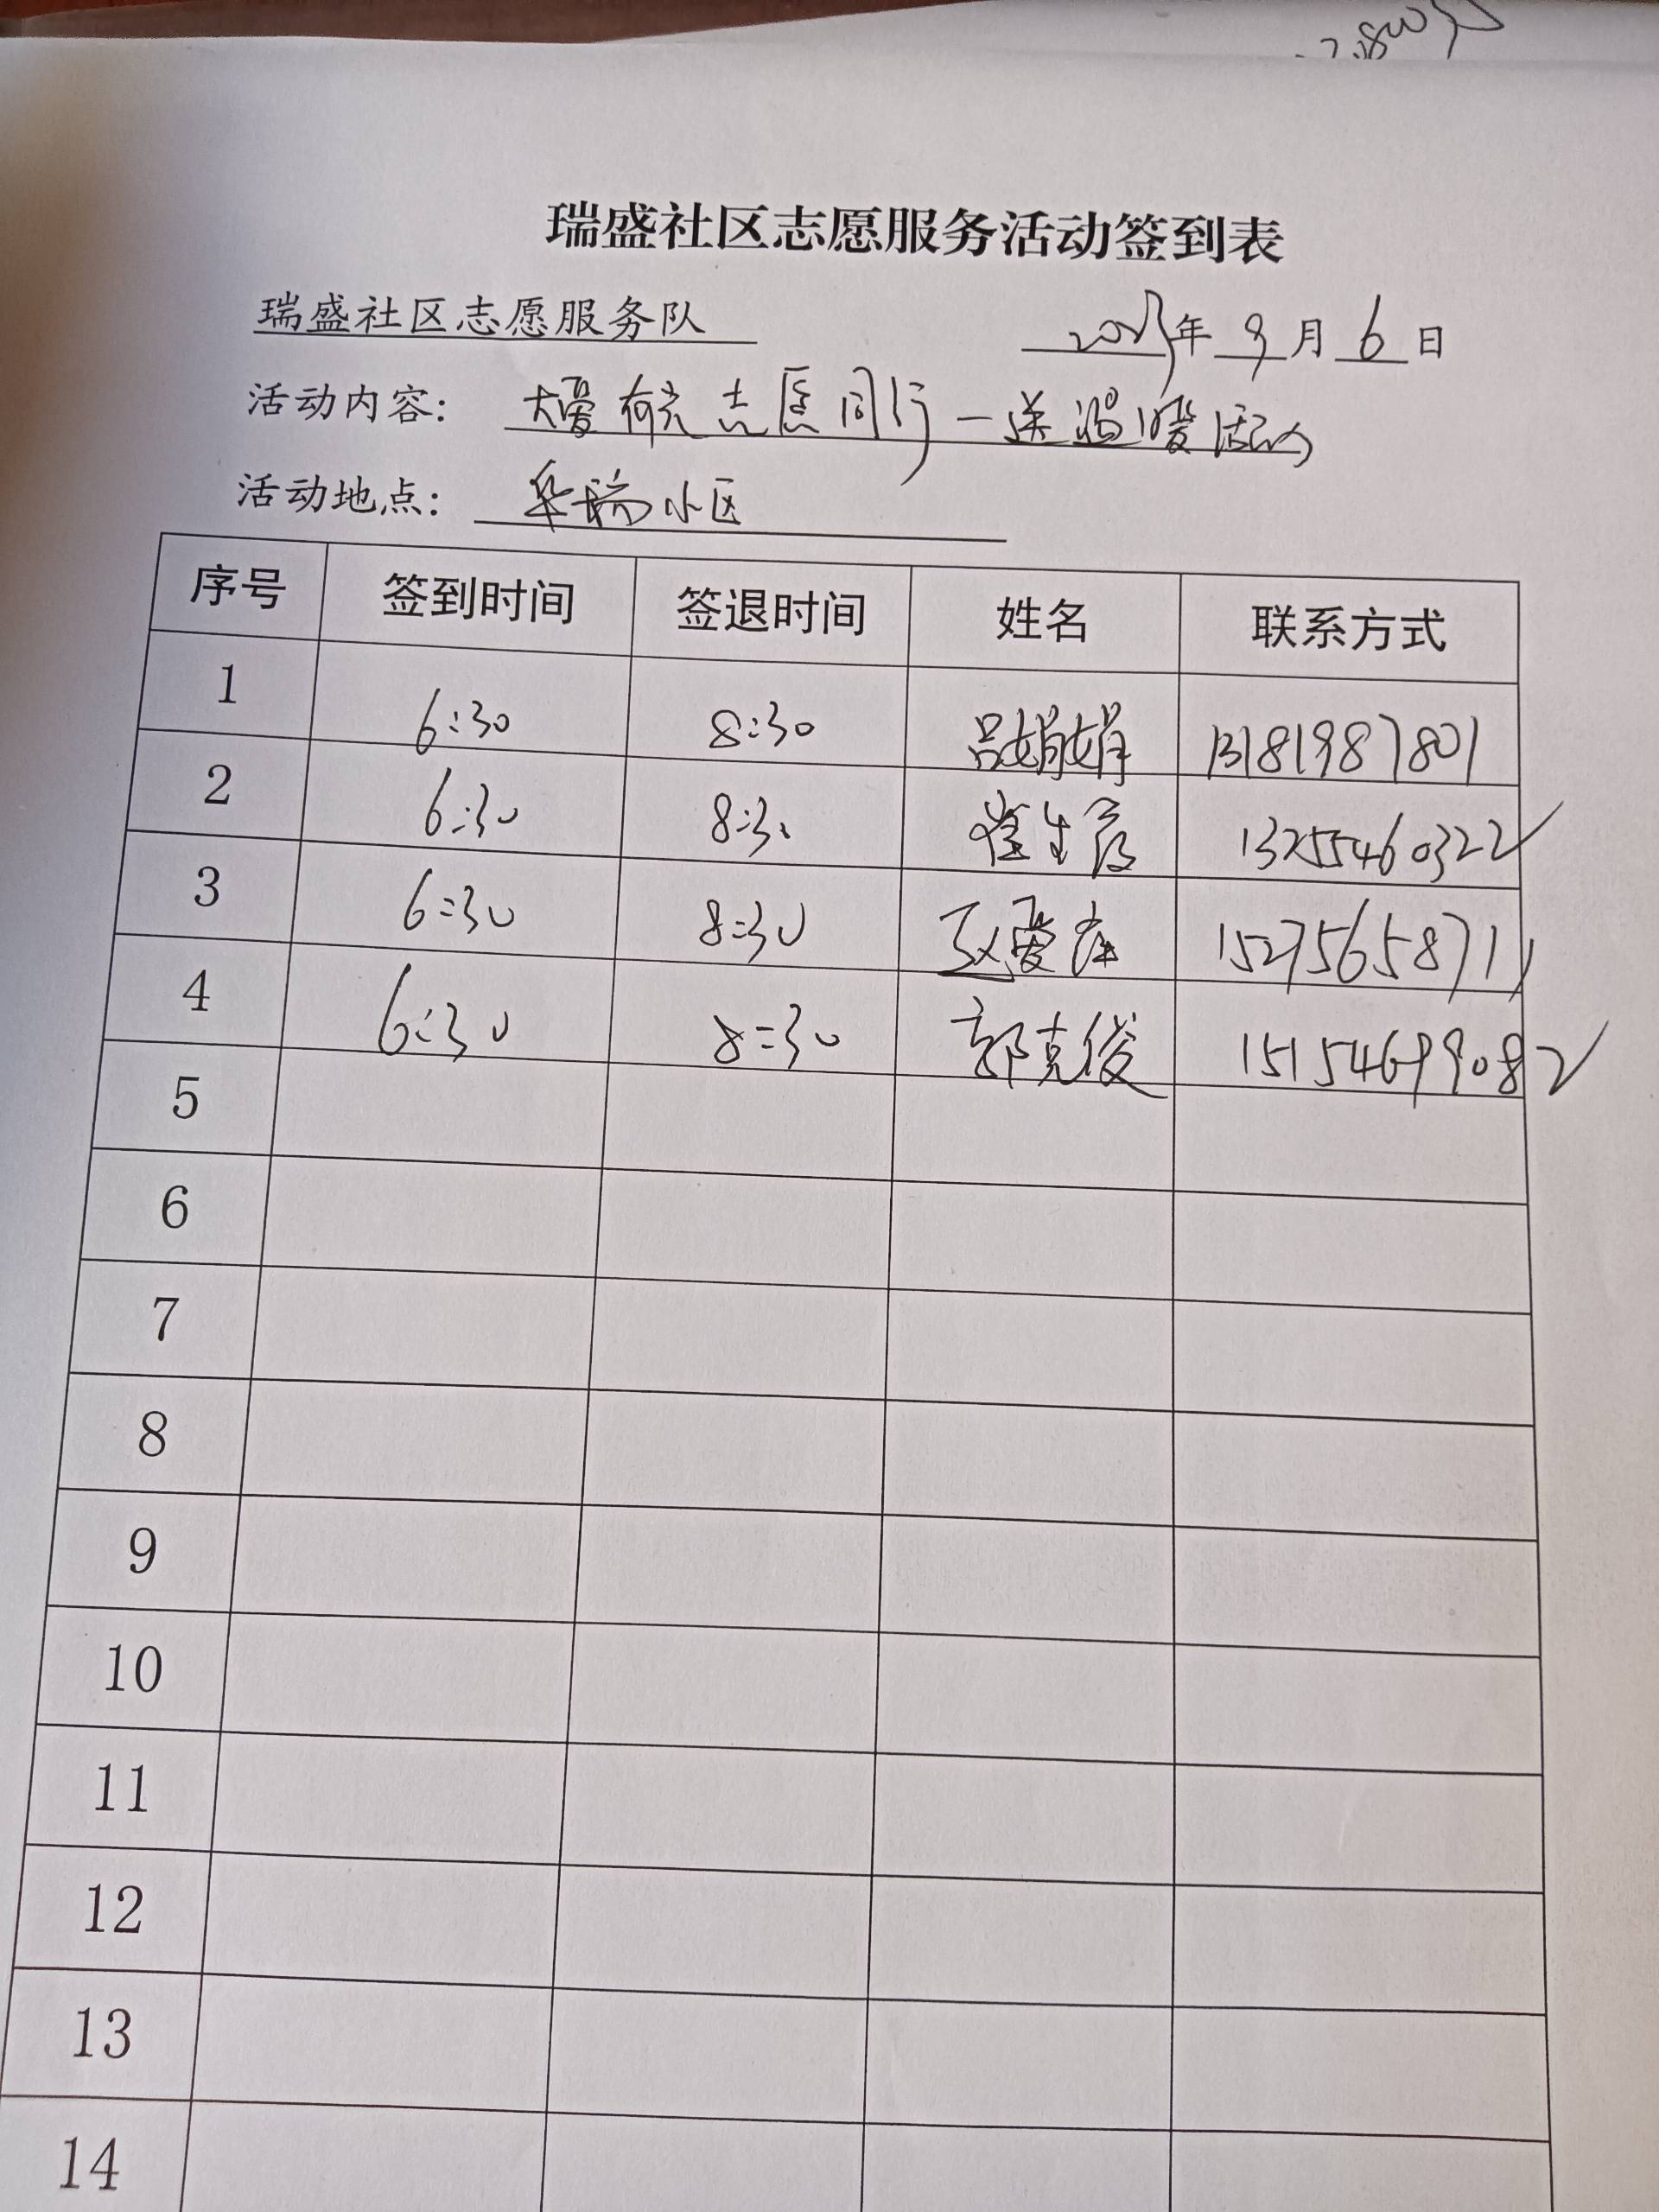 瑞盛社区志愿服务活动签到表
瑞盛社区志愿服务队 年 9 月 6 日
活动内容: 大爱有光 志愿同行 一送温暖活动
活动地点: 华瑞小区
序号 签到时间 签退时间 姓名 联系方式
1 6:30 8:30 吕娟娟 13181987801
2 6:30 8:30 崔生 13255460322
3 6:30 8:30 爱 15275658711
4 6:30 8:30 郭克俊 15154699082
5
6
7
8
9
10
11
12
13
14